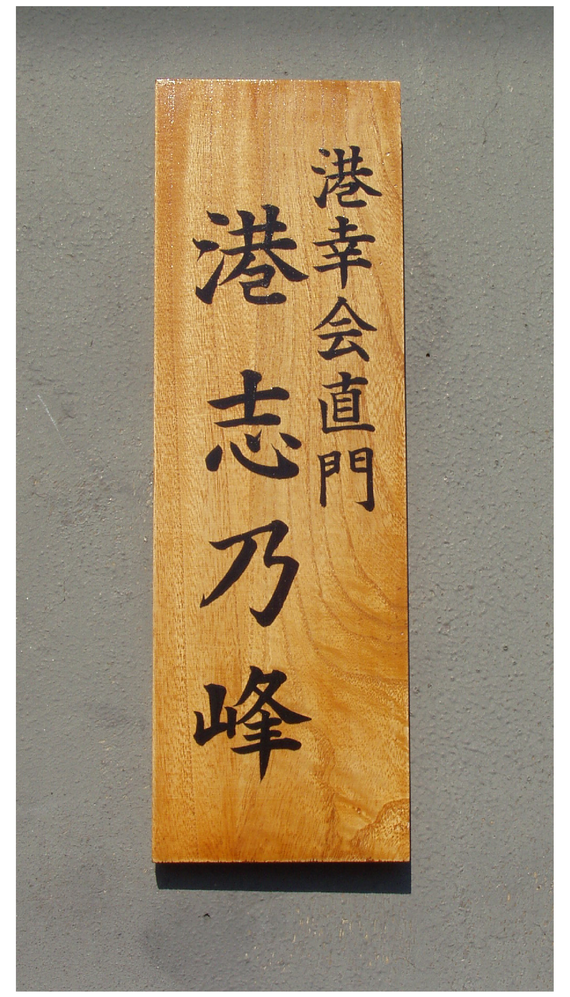 港幸会直門
港志乃峰